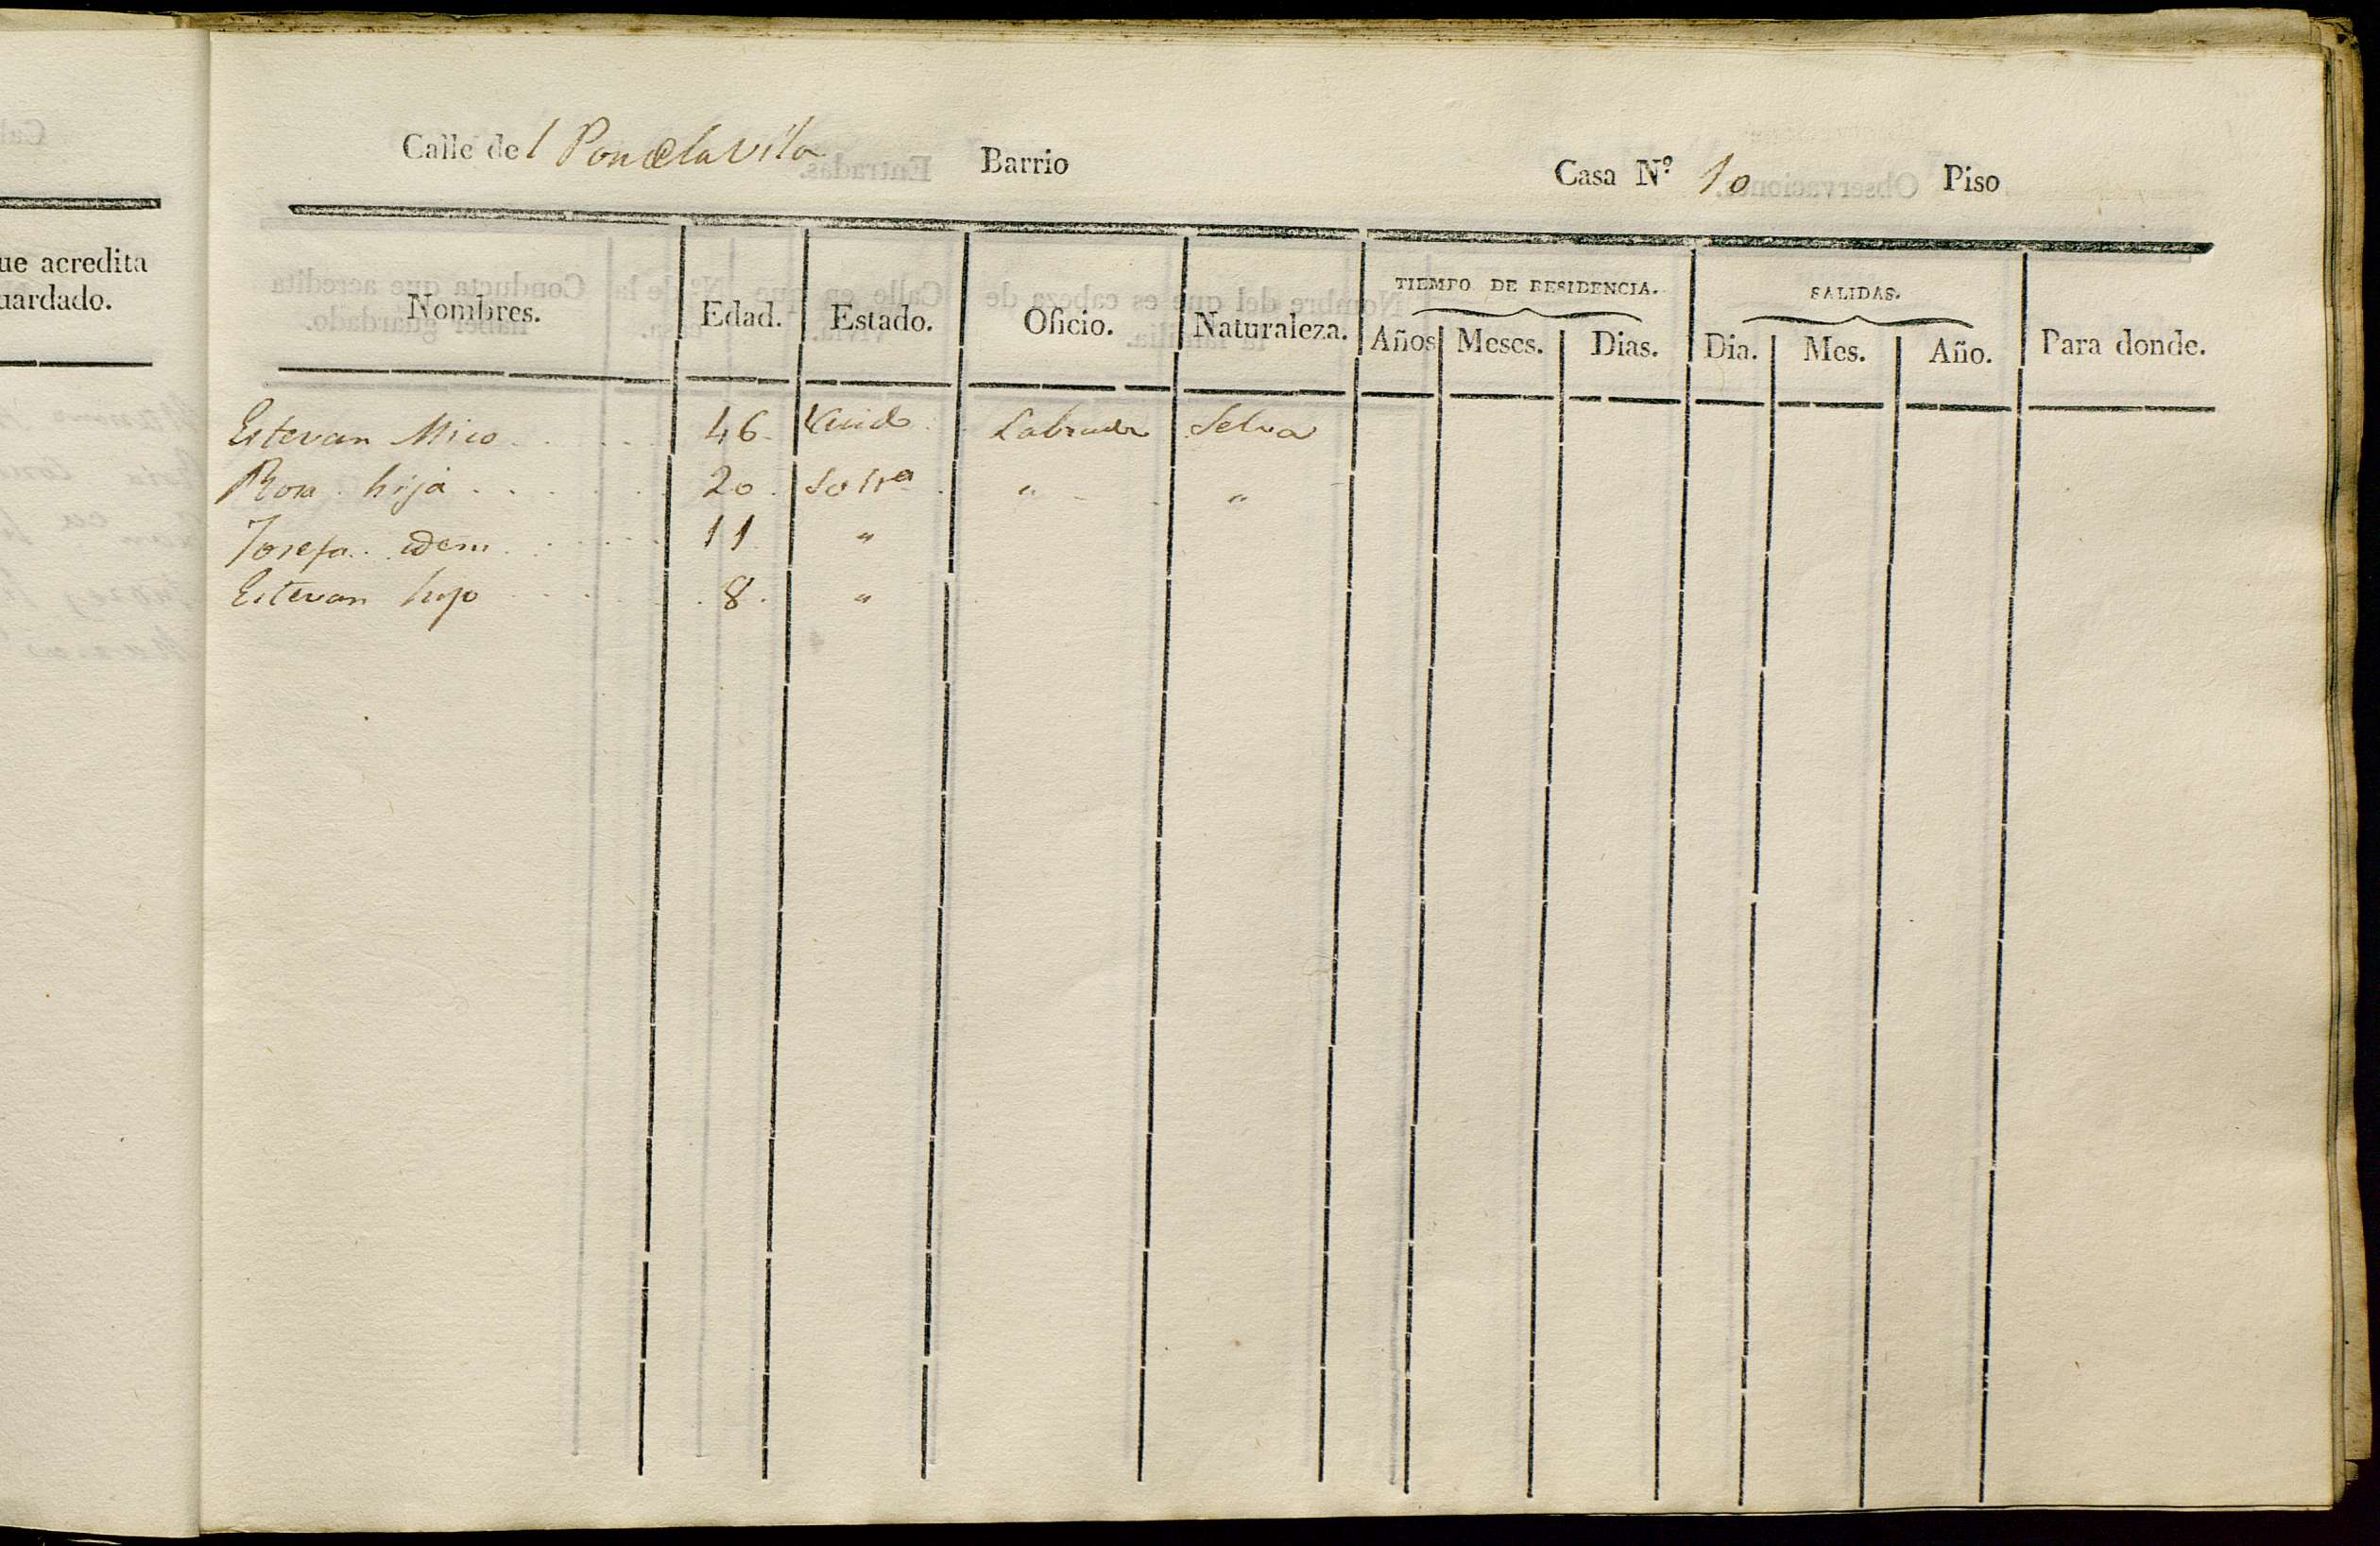 ue acredita
uardado.
Calle del Pou de la Vila Barrio Casa Nº 10 Piso
Nombres. Edad. Estado. Oficio. Naturaleza. TIEMPO DE RESIDENCIA. SALIDAS. Para donde.
Años Meses. Dias. Dia. Mes. Año.
Estevan Mico 46 Viudo Labrador Selva
Rosa hija 20 Solra " "
Josefa idem 11 "
Estevan hijo 8 "